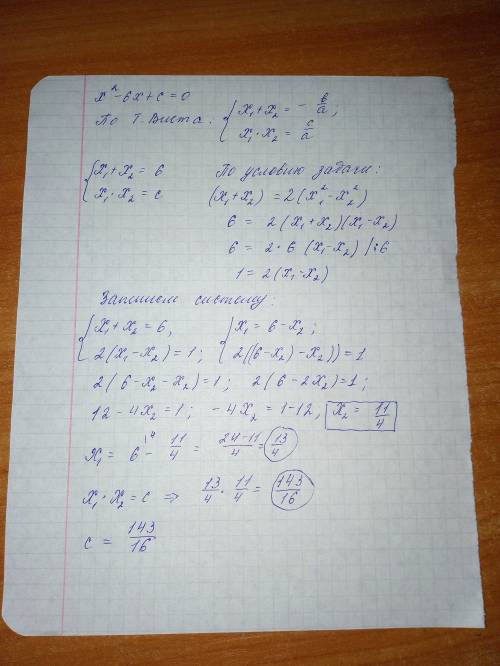 x² - 6x + c = 0
По т. Виета: { x₁ + x₂ = - b/a ;
x₁ · x₂ = c/a
{ x₁ + x₂ = 6
x₁ · x₂ = c
По условию задачи:
(x₁ + x₂) = 2(x₁² - x₂²)
6 = 2(x₁ + x₂)(x₁ - x₂)
6 = 2 · 6 (x₁ - x₂) | : 6
1 = 2(x₁ - x₂)
Запишем систему:
{ x₁ + x₂ = 6, { x₁ = 6 - x₂ ;
2(x₁ - x₂) = 1 ; 2((6 - x₂) - x₂)) = 1
2(6 - x₂ - x₂) = 1 ; 2(6 - 2x₂) = 1 ;
12 - 4x₂ = 1 ; - 4x₂ = 1 - 12, x₂ = 11/4
x₁ = 6 \⁴ - 11/4 = 24-11/4 = 13/4
x₁ · x₂ = c ⇒ 13/4 · 11/4 = 143/16
c = 143/16